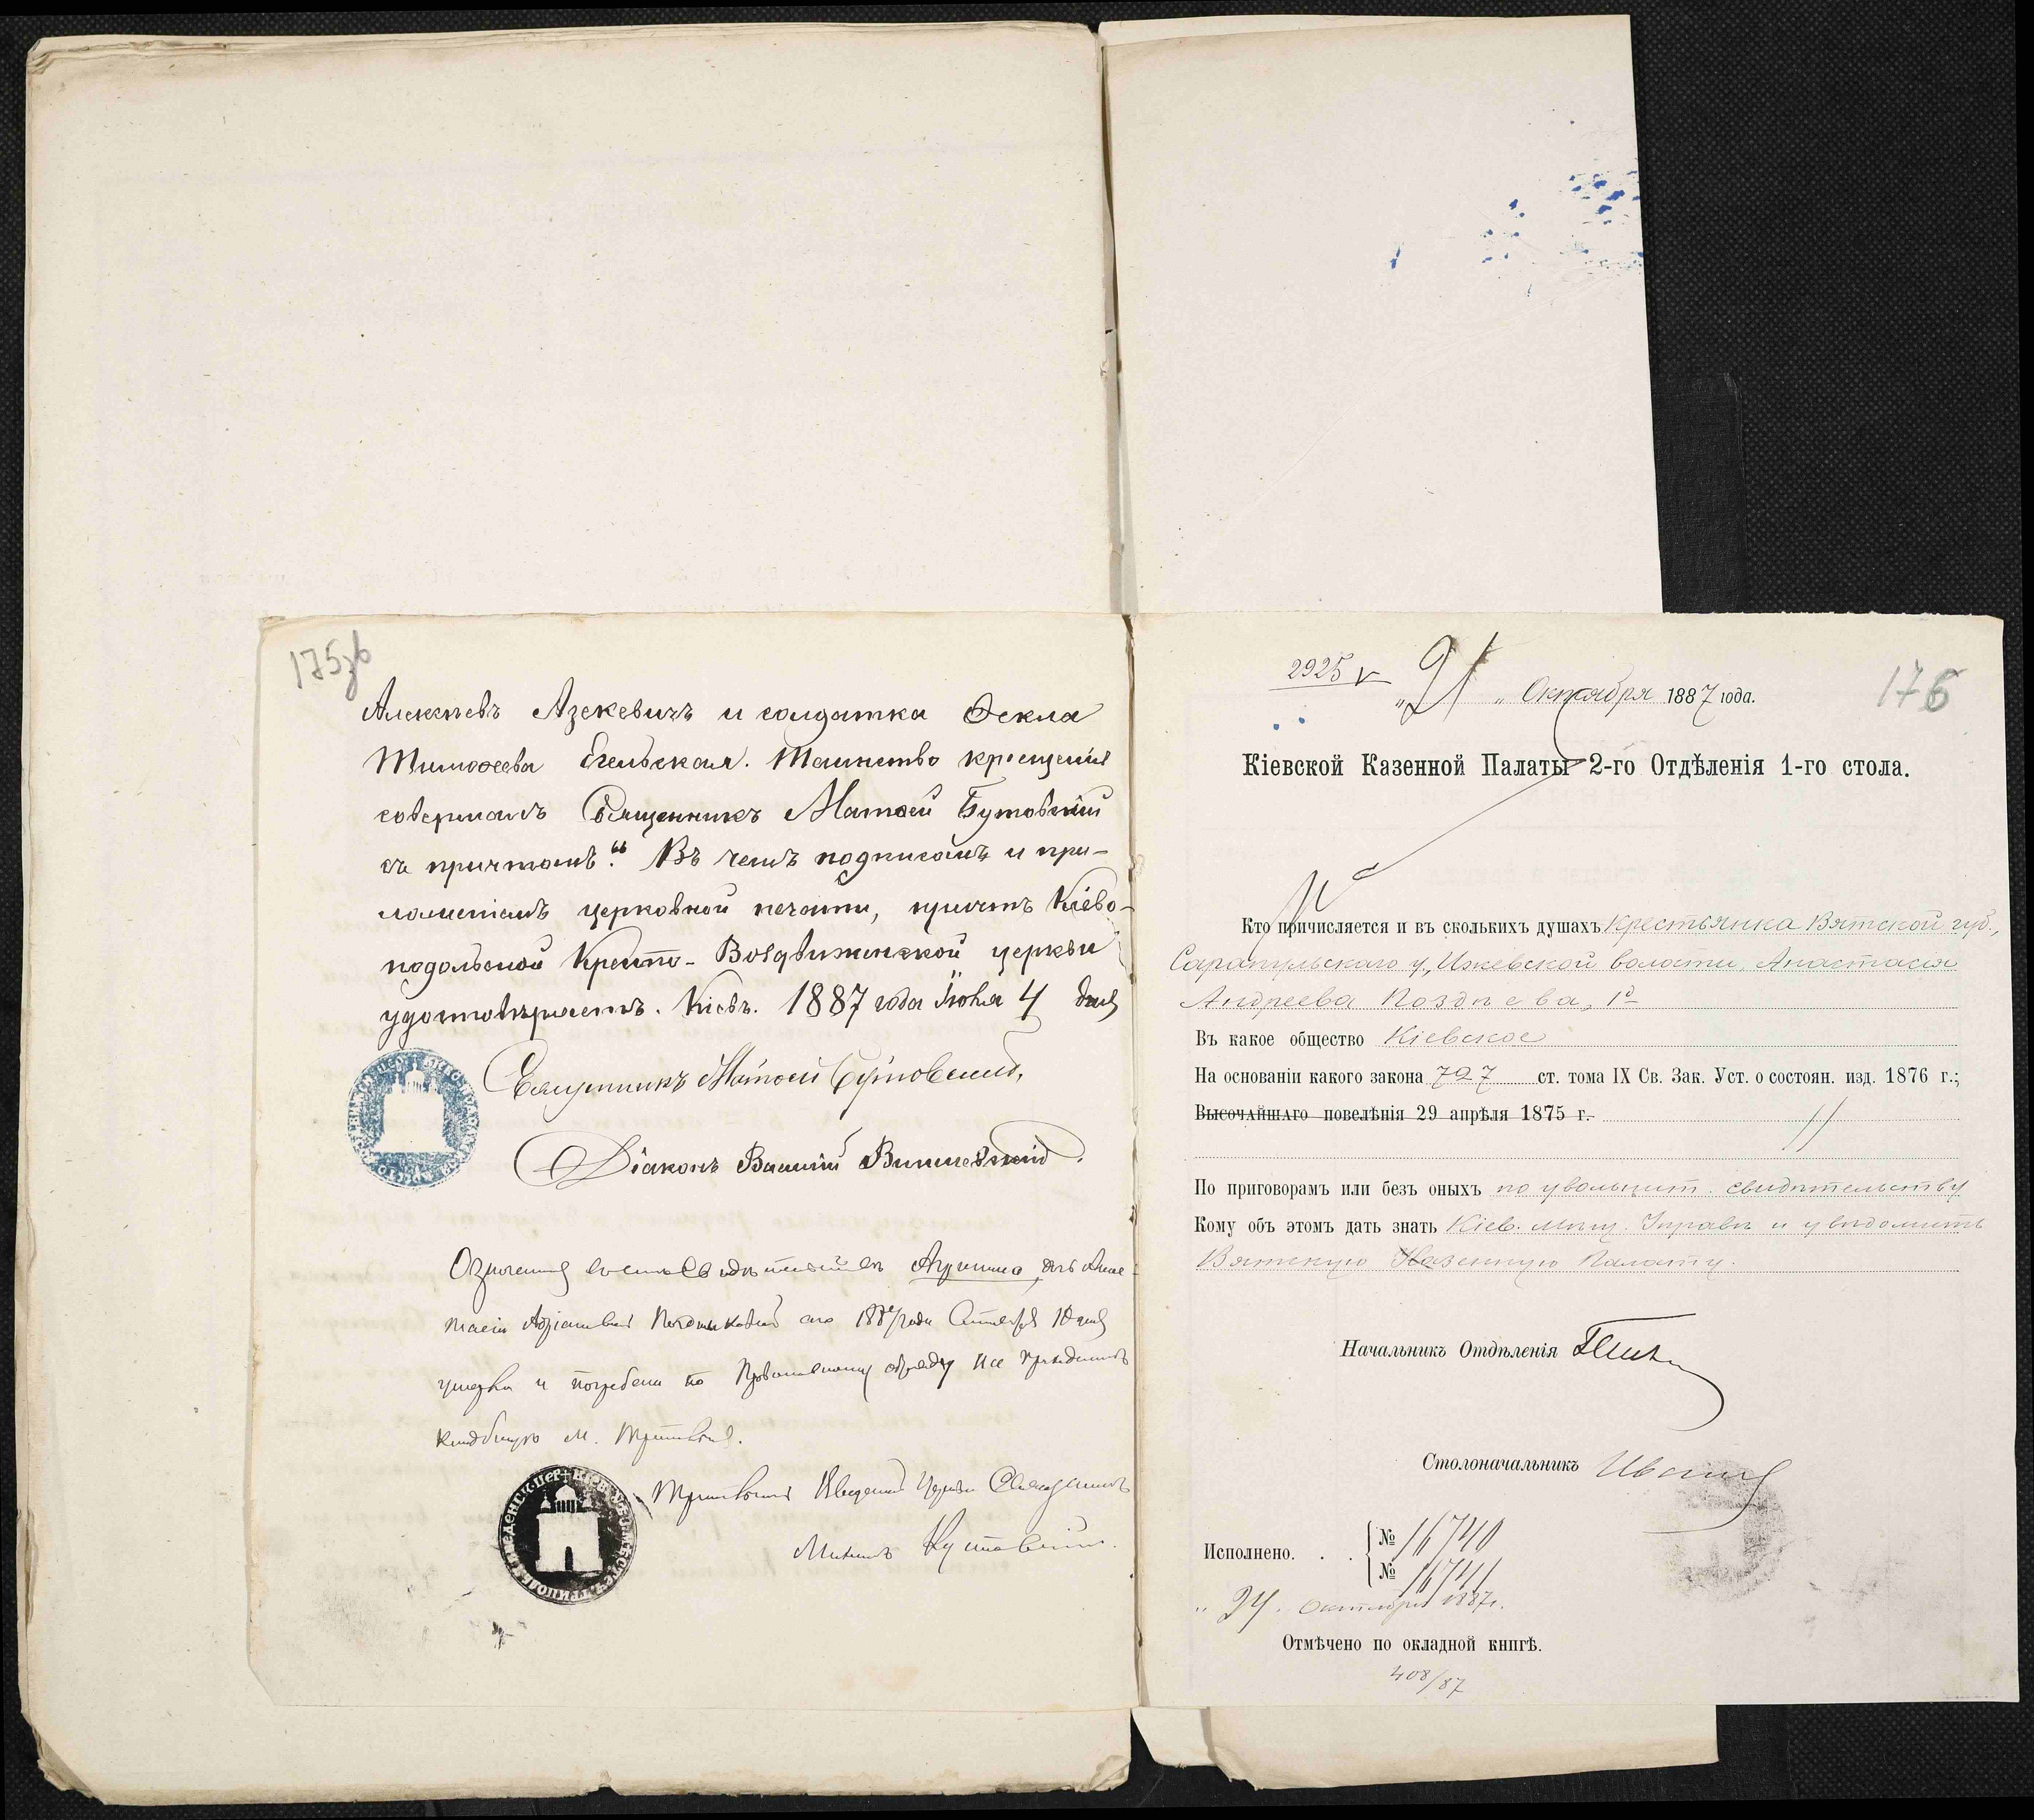 175зв
Алексѣевъ Азекевичъ и солдатка Ѳекла
Тимоѳеева Егельская. Таинство крещенія
совершалъ Священникъ Матѳей Бутовскій
съ причтомъ." Въ чемъ подписомъ и при-
ложеніемъ церковной печати, причтъ Кіево-
подольской Кресто-Воздвиженской церкви
удостовѣряетъ. Кіевъ. 1887 года Іюня 4 дня
Священникъ Матѳей Бутовскій,
Діаконъ Василій Вишневскій.
Означенная въ семъ Свидѣтельствѣ Агрипина, дочь Анас-
тасіи 1887 года 10 дня
умерла и погребена по Православному обряду на
кладбищѣ м. Триполья.
Трипольской Введенской Церкви Священникъ
2925
„21„ Октября 1887 года.
176
Кіевской Казенной Палаты 2-го Отдѣленія 1-го стола.
Кто причисляется и въ сколькихъ душахъ Крестьянка Вятской губ.,
Сарапульскаго у., Ижевской волости, Анастасія
Андреева Поздѣева, 1
Въ какое общество Кіевское
На основаніи какого закона 727 ст. тома IX Св. Зак. Уст. о состоян. изд. 1876 г.;
Высочайшаго повелѣнія 29 апрѣля 1875 г.
По приговорамъ или безъ оныхъ по увольнит. свидѣтельству
Кому объ этомъ дать знать Кіев. Мѣщ. Управѣ и увѣдомить
Вятскую Казенную Палату.
Начальникъ Отдѣленія
Столоначальникъ
Исполнено. . . № 16740
№ 16741
„ 24. Октября 1887 г.
Отмѣчено по окладной книгѣ.
408/87